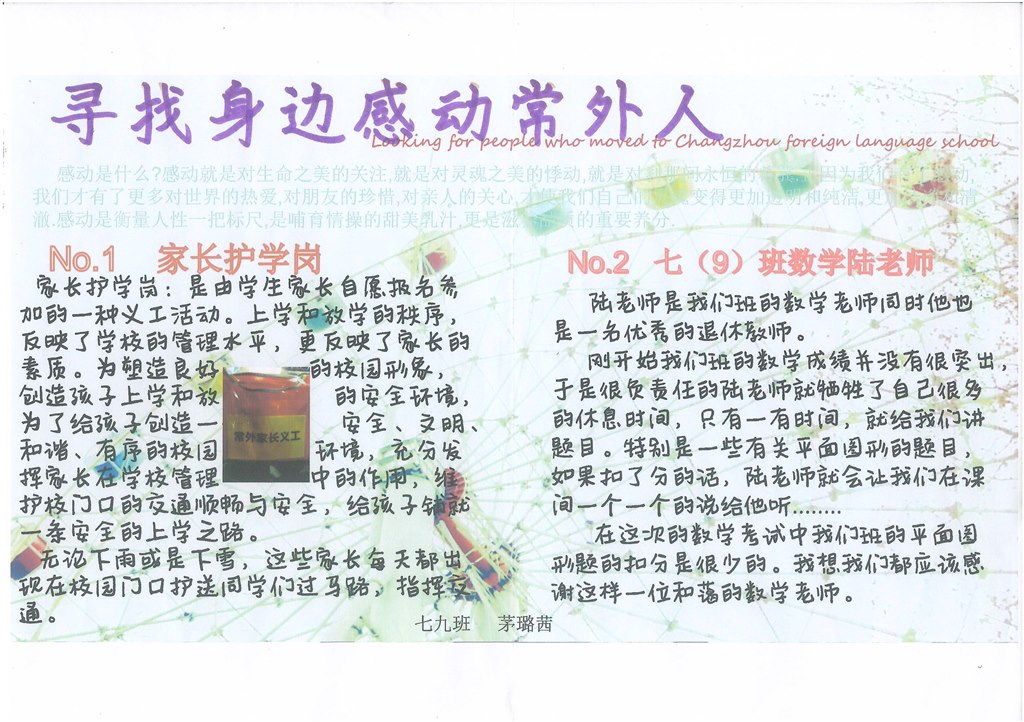 寻找身边感动常外人
Looking for people who moved to Changzhou foreign language school
感动是什么?感动就是对生命之美的关注,就是对灵魂之美的悸动,就是对
因为我们
我们才有了更多对世界的热爱,对朋友的珍惜,对亲人的关心,才使我们自己的
变得更加透明和纯清,更
清
澈.感动是衡量人性一把标尺,是哺育情操的甜美乳汁,更是滋
的重要养分.
No.1 家长护学岗
家长护学岗：是由学生家长自愿报名参
加的一种义工活动。上学和放学的秩序，
反映了学校的管理水平，更反映了家长的
素质。为塑造良好的校园形象，
创造孩子上学和放的安全环境，
为了给孩子创造一安全、文明、
和谐、有序的校园环境，充分发
挥家长在学校管理中的作用，维
护校门口的交通顺畅与安全，给孩子铺就
一条安全的上学之路。
无论下雨或是下雪，这些家长每天都出
现在校园门口护送同学们过马路，指挥交
通。
常外家长义工
No.2 七（9）班数学陆老师
陆老师是我们班的数学老师同时他也
是一名优秀的退休教师。
刚开始我们班的数学成绩并没有很突出，
于是很负责任的陆老师就牺牲了自己很多
的休息时间，只有一有时间，就给我们讲
题目。特别是一些有关平面图形的题目，
如果扣了分的话，陆老师就会让我们在课
间一个一个的说给他听........
在这次的数学考试中我们班的平面图
形题的扣分是很少的。我想我们都应该感
谢这样一位和蔼的数学老师。
七九班 茅璐茜